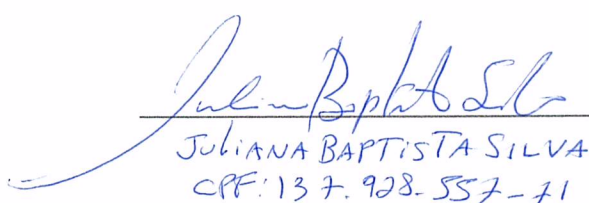 Juliana Baptista Silva
JULIANA BAPTISTA SILVA
CPF: 137.928-557-71